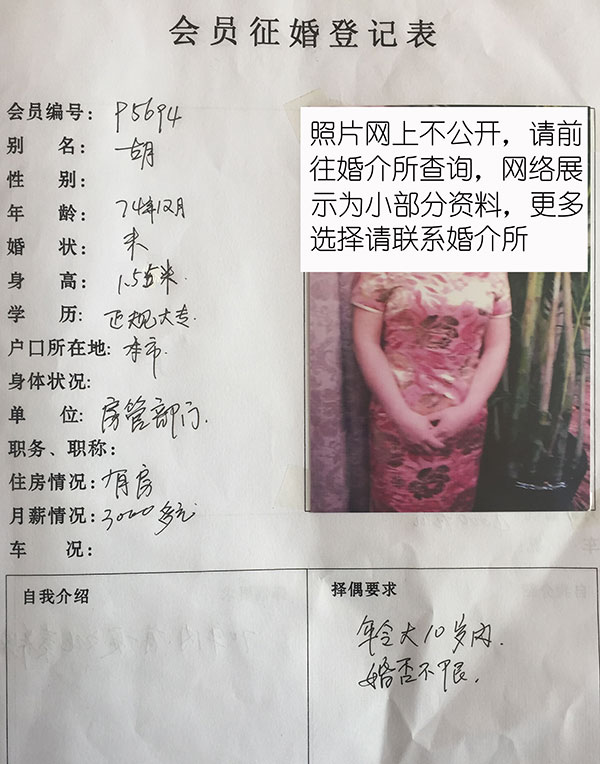 会员征婚登记表
会员编号： P5694
别 名： 胡
性 别：
年 龄： 74年12月
婚 状： 未
身 高： 1.55米
学 历： 正规大专.
户口所在地: 本市
身体状况:
单 位: 房管部门.
职务、职称：
住房情况： 有房
月薪情况: 3000多元
车 况:
照片网上不公开，请前
往婚介所查询，网络展
示为小部分资料，更多
选择请联系婚介所
自我介绍
择偶要求
年令大10岁内.
婚否不限.